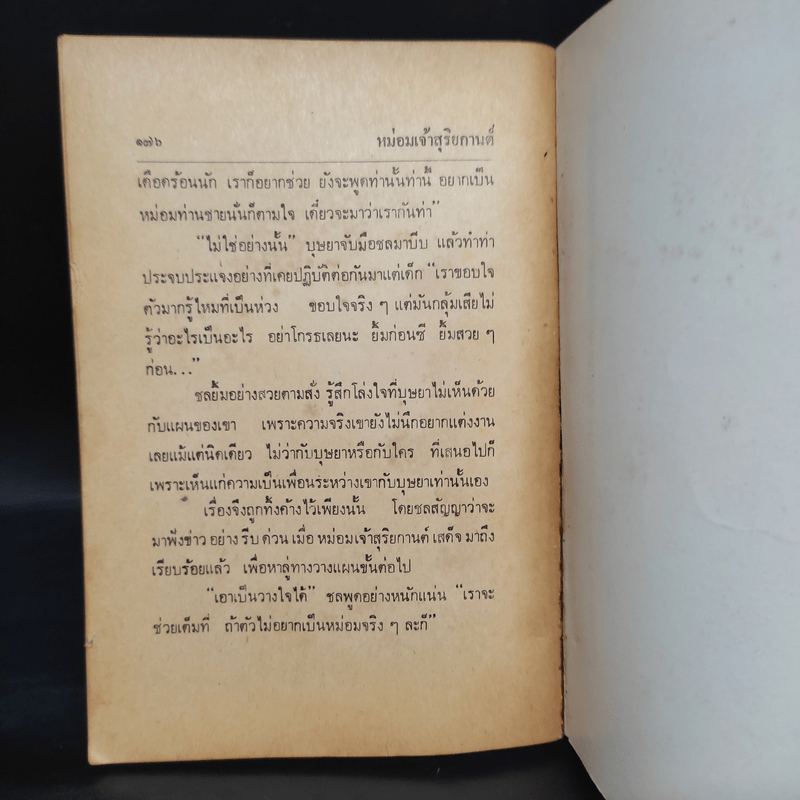 ๑๗๖ หม่อมเจ้าสุริยกานต์
เดือดร้อนนัก เราก็อยากช่วย ยังจะพูดท่านั้นท่านี้ อยากเป็น
หม่อมท่านชายนั่นก็ตามใจ เดี๋ยวจะมาว่าเรากันท่า"
"ไม่ใช่อย่างนั้น" บุษยาจับมือชลมาบีบ แล้วทำท่า
ประจบประแจงอย่างที่เคยปฏิบัติต่อกันมาแต่เด็ก "เราขอบใจ
ตัวมากรู้ไหมที่เป็นห่วง ขอบใจจริง ๆ แต่มันกลุ้มเสียไม่
รู้ว่าอะไรเป็นอะไร อย่าโกรธเลยนะ ยิ้มก่อนซี ยิ้มสวย ๆ
ก่อน..."
ชลยิ้มอย่างสวยตามสั่ง รู้สึกโล่งใจที่บุษยาไม่เห็นด้วย
กับแผนของเขา เพราะความจริงเขายังไม่นึกอยากแต่งงาน
เลยแม้แต่นิดเดียว ไม่ว่ากับบุษยาหรือกับใคร ที่เสนอไปก็
เพราะเห็นแก่ความเป็นเพื่อนระหว่างเขากับบุษยาเท่านั้นเอง
เรื่องจึงถูกทิ้งค้างไว้เพียงนั้น โดยชลสัญญาว่าจะ
มาฟังข่าว อย่าง รีบ ด่วน เมื่อ หม่อมเจ้าสุริยกานต์ เสด็จ มาถึง
เรียบร้อยแล้ว เพื่อหาลู่ทางวางแผนขั้นต่อไป
"เอาเป็นวางใจได้" ชลพูดอย่างหนักแน่น "เราจะ
ช่วยเต็มที่ ถ้าตัวไม่อยากเป็นหม่อมจริง ๆ ละก็"